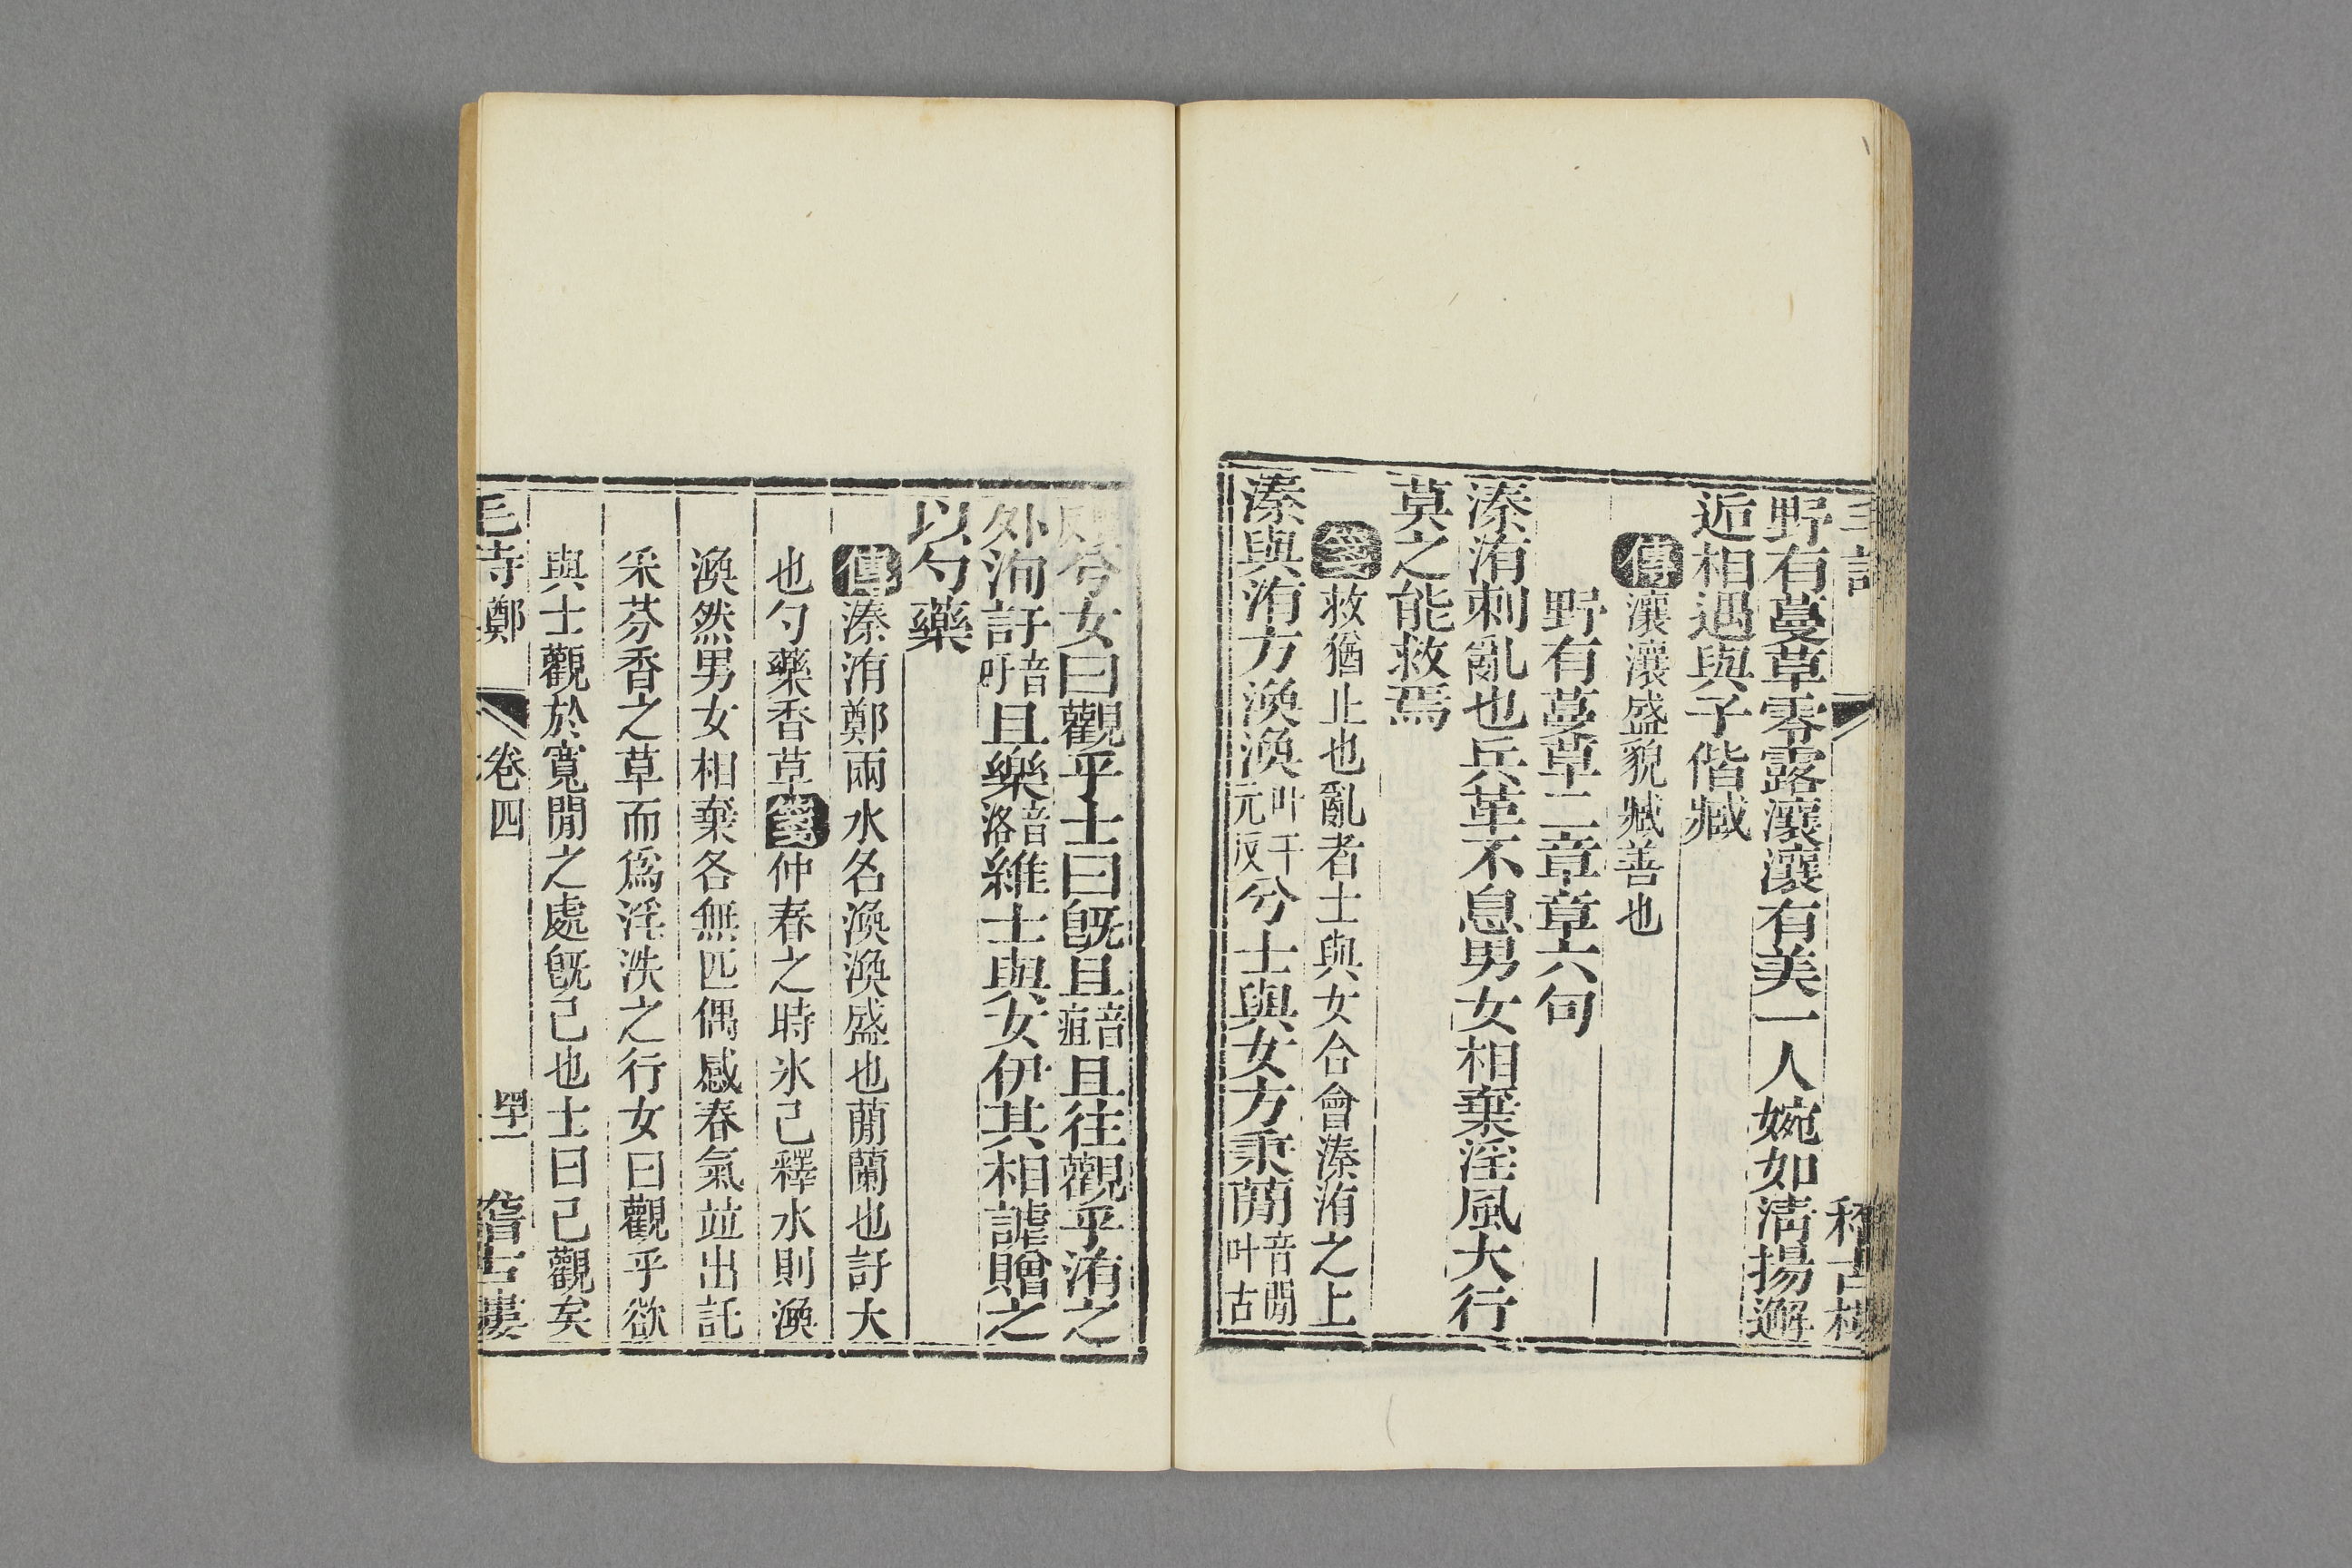 野有蔓草零露瀼瀼有美一人婉如清揚邂
逅相遇與子偕臧
傳瀼瀼盛貌臧善也
野有蔓草二章章六句
溱洧刺亂也兵革不息男女相棄淫風大行
莫之能救焉
箋救猶止也亂者士與女合會溱洧之上
溱與洧方渙渙叶于元反兮士與女方秉蕑音閒叶古
兮女曰觀乎士曰旣且音疽且往觀乎洧之
外洵訏音吁且樂音洛維士與女伊其相謔贈之
以勺藥
傳溱洧鄭兩水名渙渙盛也蕑蘭也訏大
也勺藥香草箋仲春之時氷己釋水則渙
渙然男女相棄各無匹偶感春氣竝出託
采芬香之草而爲淫泆之行女曰觀乎欲
與士觀於寬閒之處旣己也士曰己觀矣
鄭 卷四 四十一